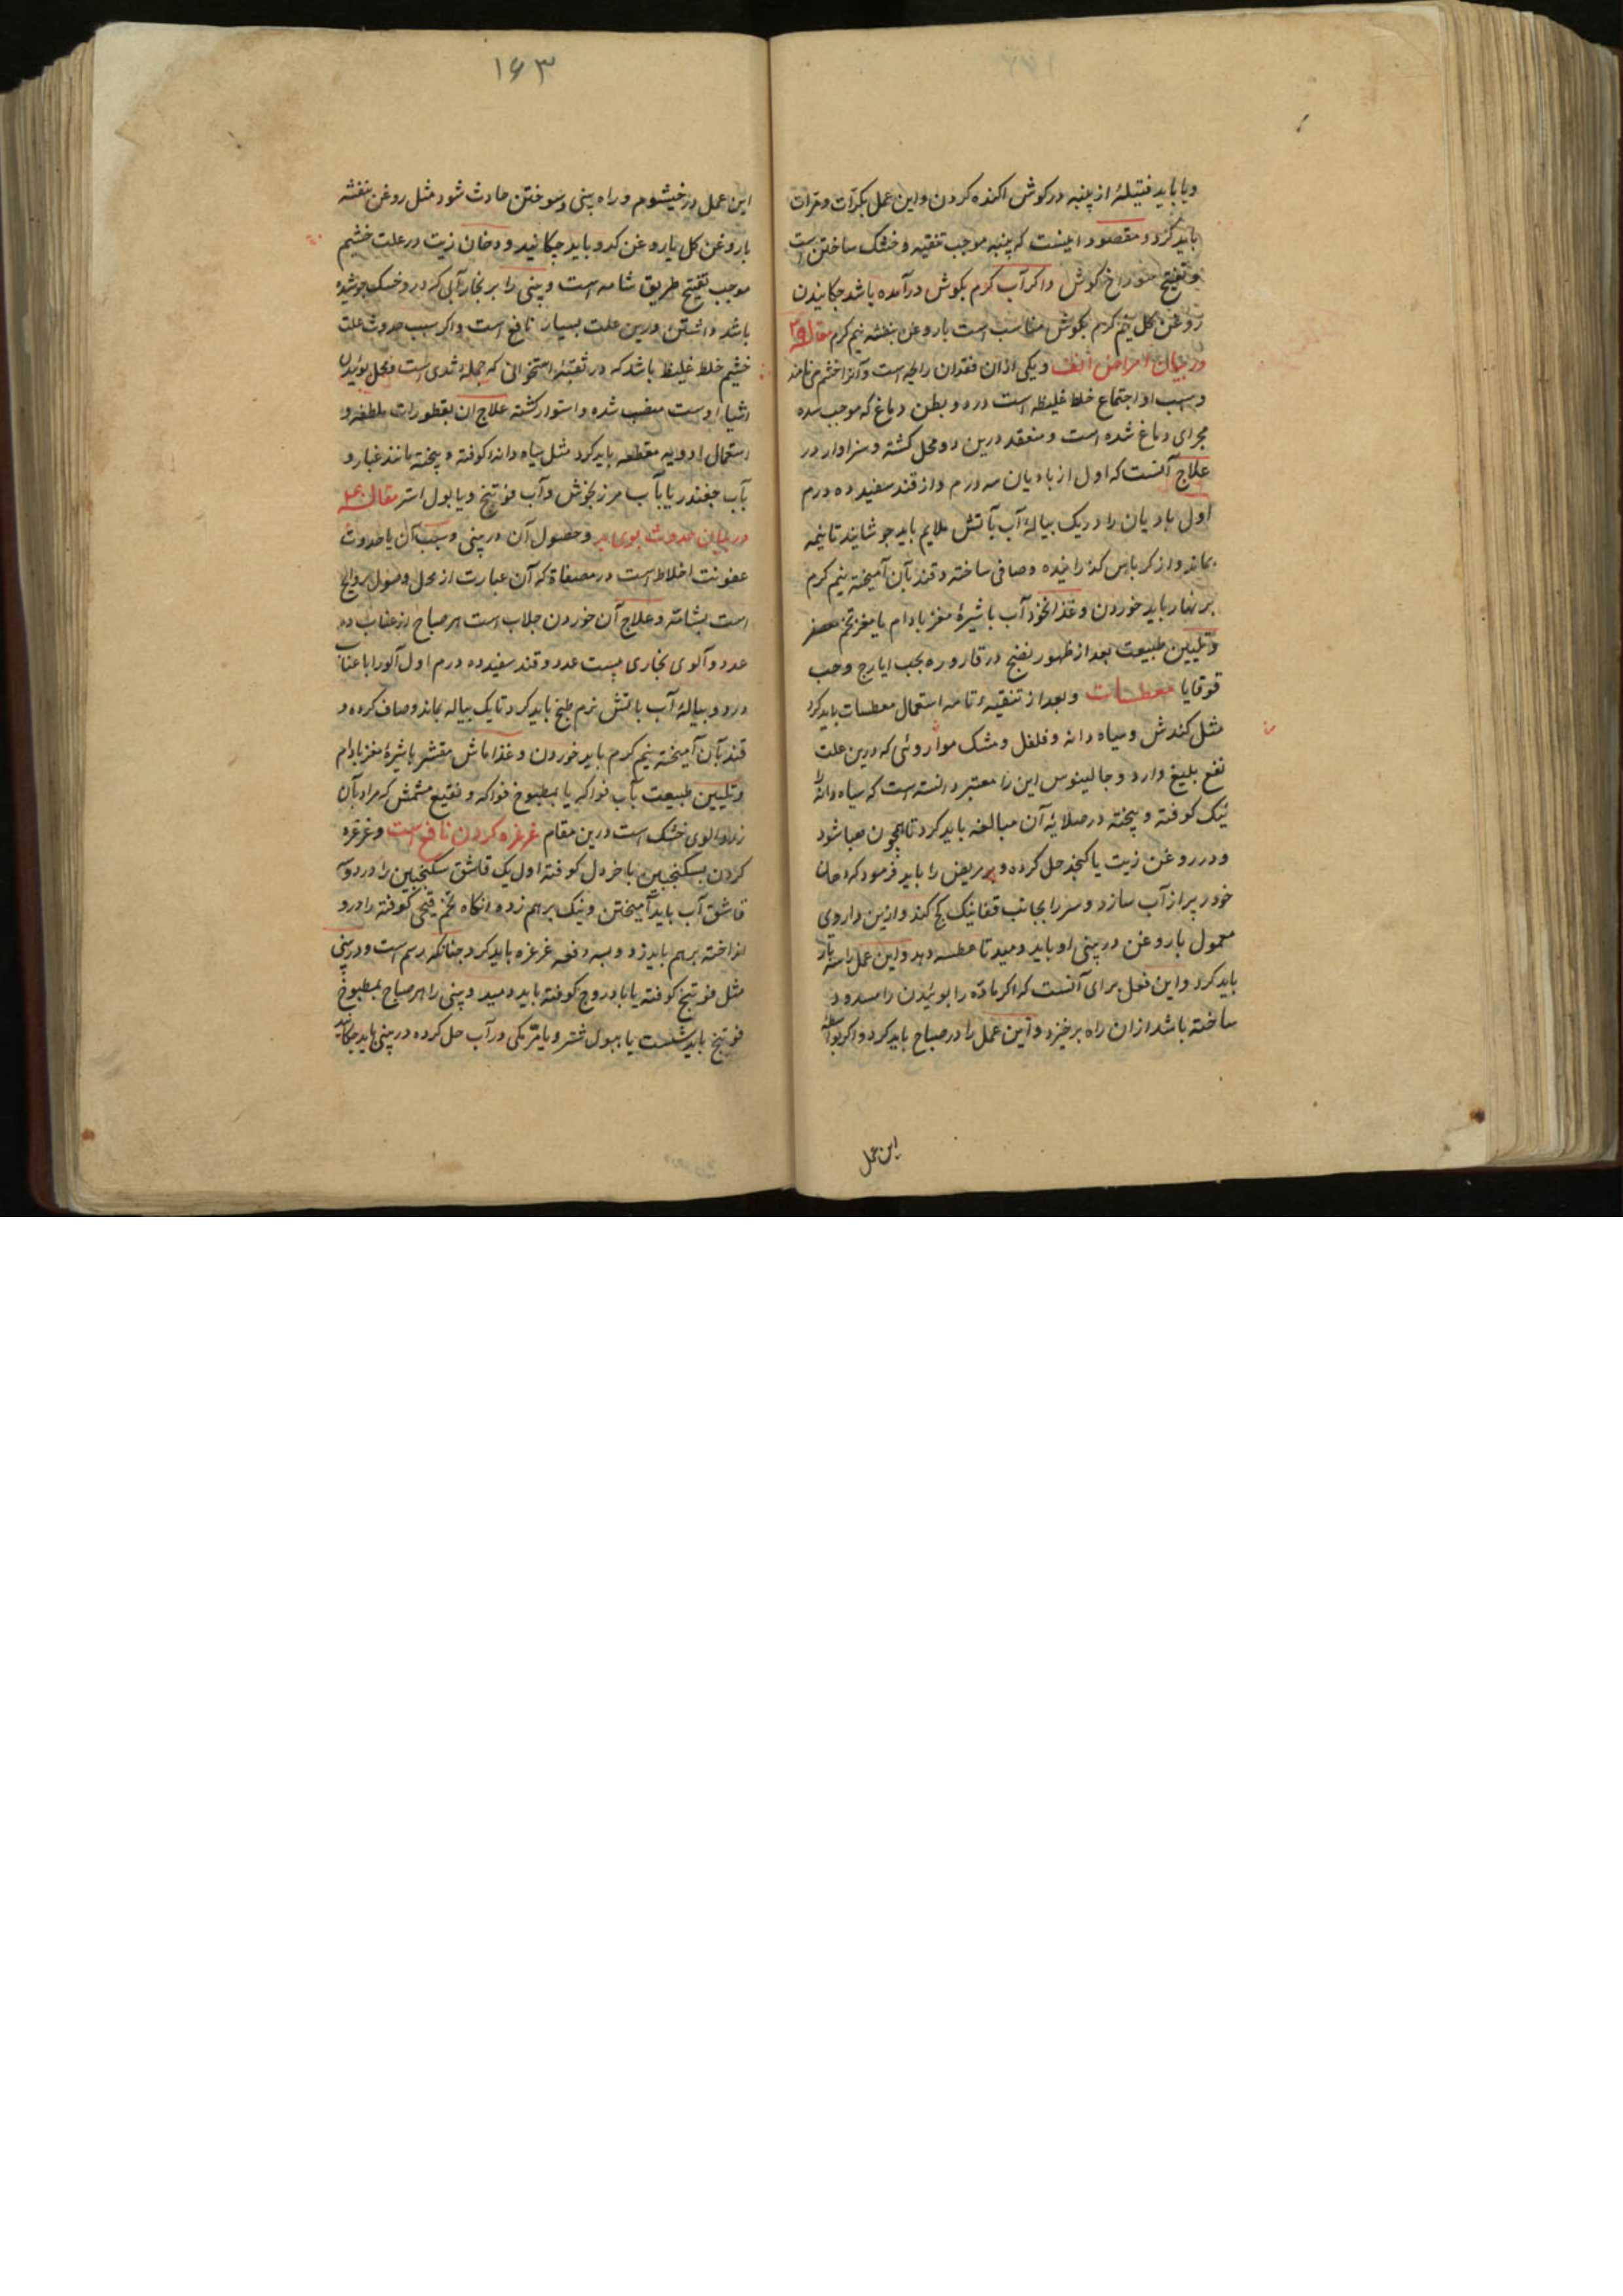 و یا باید فتیلهٔ از پنبه در کوش اکنده کردن و این عمل بکرات و مرات
باید کرد و مقصود اینست که پنبه موجب تنقیه و خشک ساختن است
و تفتیح سوراخ کوش و اکر آب کرم بکوش درآمده باشد چکانیدن
روغن کل نیم کرم بکوش مناسب است با روغن بنفشه نیم کرم مقاله ۳۹
در بیان امراض انف و یکی از ان فقدان رایحه است و آنرا خشم می نامند
و سبب او اجتماع خلط غلیظه است در دو بطن دماغ که موجب سده
مجرای دماغ شده است و منعقد درین دو محل کشته و سزاوار در
علاج آنست که اول از بادیان سه درم و از قند سفید ده درم
اول بادیان را در یک پیالهٔ آب بآتش ملایم باید جوشانید تا نیمه
بماند و از کرباس کذرانیده و صافی ساخته و قند بآن آمیخته نیم کرم
بر نهار باید خوردن و غذا نخود آب با شیرهٔ مغز بادام یا مغز تخم معصفر
و تلیین طبیعت بعد از ظهور نضج در قاروره بحب ایارج و حب
قوقایا معطسات و بعد از تنقیهٔ تامه استعمال معطسات باید کرد
مثل کندش و سیاه دانه و فلفل و مشک موا روئی که درین علت
نفع بلیغ دارد و جالینوس این را معتبر دانسته است که سیاه دانه را
نیک کوفته و پیخته در صلایهٔ آن مبالغه باید کرد تا همچون هبا شود
و در روغن زیت یا کنجد حل کرده و مریض را باید فرمود که دهان
خود پر از آب سازد و سر را بجانب قفا نیک کج کند و ازین داروی
معمول با روغن در بینی او باید دمید تا عطسه دهد و این عمل را سه بار
باید کرد و این فعل برای آنست که اکر ماده را بوئیدن را مسدود
ساخته باشد ازان راه برخیزد و این عمل را در صباح باید کرد و اکر بواسطهٔ
این عمل
۱۶۳
این عمل در خیشوم و راه بینی و سوختن حادث شود مثل روغن بنفشه
با روغن کل یا روغن کدو باید چکانید و دخان زیت در علت خشم
موجب تفتیح طریق شامه است و بینی را بر بخار آبی که در و خسک جوشیده
باشد داشتن درین علت بسیار نافع است و اکر سبب حدوث علت
خشم خلط غلیظ باشد که در ثقبهٔ استخوانی که حملهٔ ثدی است و محل بوئیدن
اشیا اوست منصب شده و استوار کشته علاج ان بقطورات ملطفه و
استعمال ادویه مقطعه باید کرد مثل سیاه دانه کوفته و پیخته مانند غبار و
بآب چغندر یا بآب مرزنجوش و آب فوتنج و یا بول استر مقاله ۴۰
در بیان حدوث بوی بد و حصول آن در بینی و سبب آن یا حدوث
عفونت اخلاط است در مصفاة که آن عبارت از محل وصول روایح
است بشامه و علاج آن خوردن جلاب است هر صباح از عناب ده
عدد و آلوی بخاری بیست عدد و قند سفید ده درم اول آلو را با عناب
در دو پیالهٔ آب باتش نرم طبخ باید کرد تا یک پیاله بماند و صاف کرده و
قند بآن آمیخته نیم کرم باید خوردن و غذا ماش مقشر با شیرهٔ مغز بادام
و تلیین طبیعت بآب فواکه یا بمطبوخ فواکه و نقیع مشمش که مراد بآن
زردالوی خشک است درین مقام غرغره کردن نافع است و غرغره
کردن بسکنجبین با خردل کوفته اول یک قاشق سکنجبین را در دو
قاشق آب باید آمیختن و نیک برهم زده و انکاه تخم قیچی کوفته را در و
انداخته برهم باید زد و بسه دفعه غرغره باید کرد چنانکه رسم است و در بینی
مثل فوتنج کوفته یا بادروج کوفته باید دمید و بینی را هر صباح بمطبوخ
فوتنج باید شست یا ببول شتر و یا مرّ مکی در آب حل کرده در بینی باید چکانید